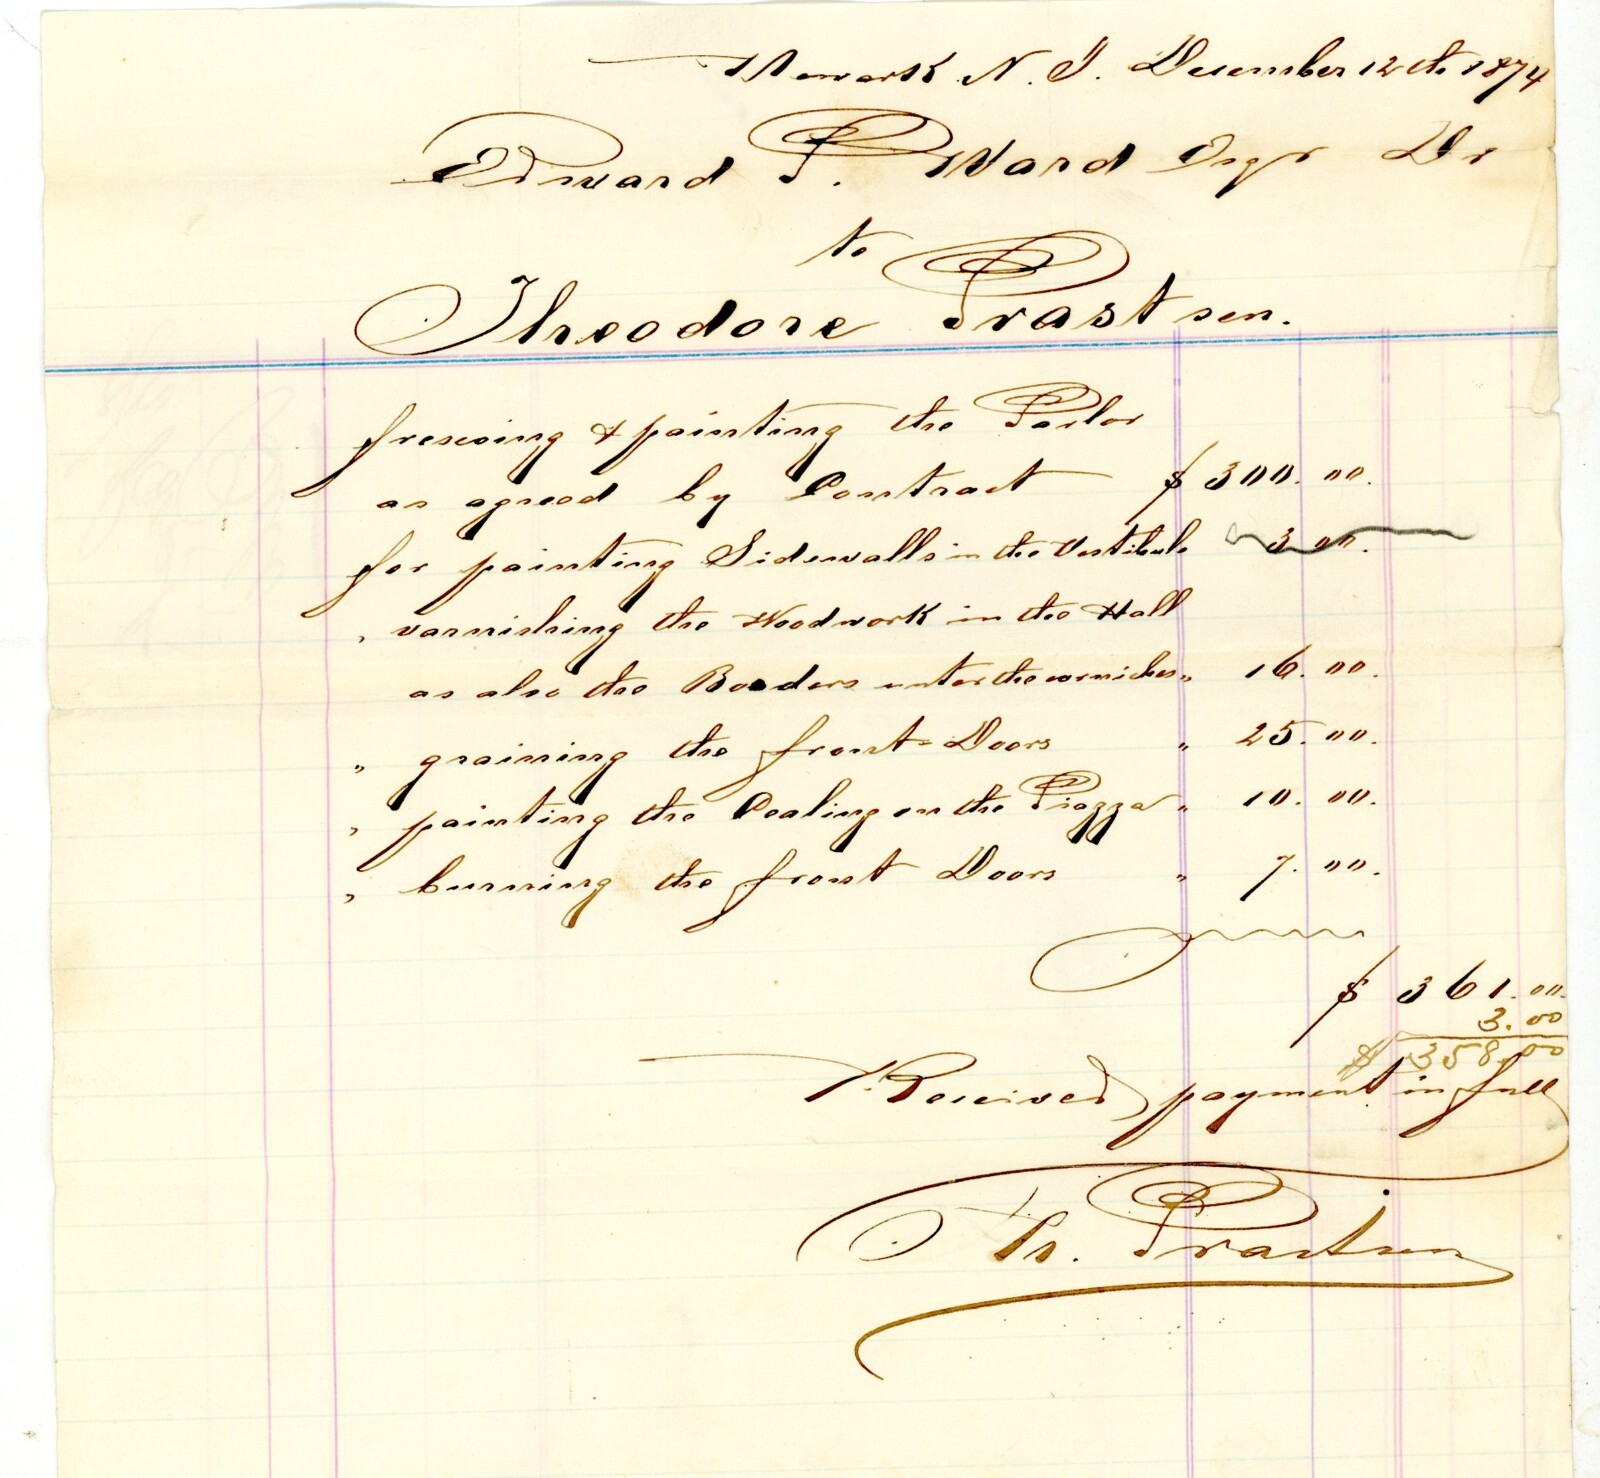 Newark N. J. December 12th 1874
Edward P. Ward Esqr Dr
to
Theodore Prast sen.
frescoing & painting the Parlor
as agreed by Contract $ 300.00.
for painting Sidewalls in the Vestibule 3.00.
" varnishing the Woodwork in the Hall
as also the Boaders unter the corniches " 16.00.
" graining the front-Doors " 25.00.
" painting the Cealing on the Piazza " 10.00.
" burning the front Doors " 7.00.
$ 361.00.
3.00
$ 358.00
Received payment in full
Th. Prast sen